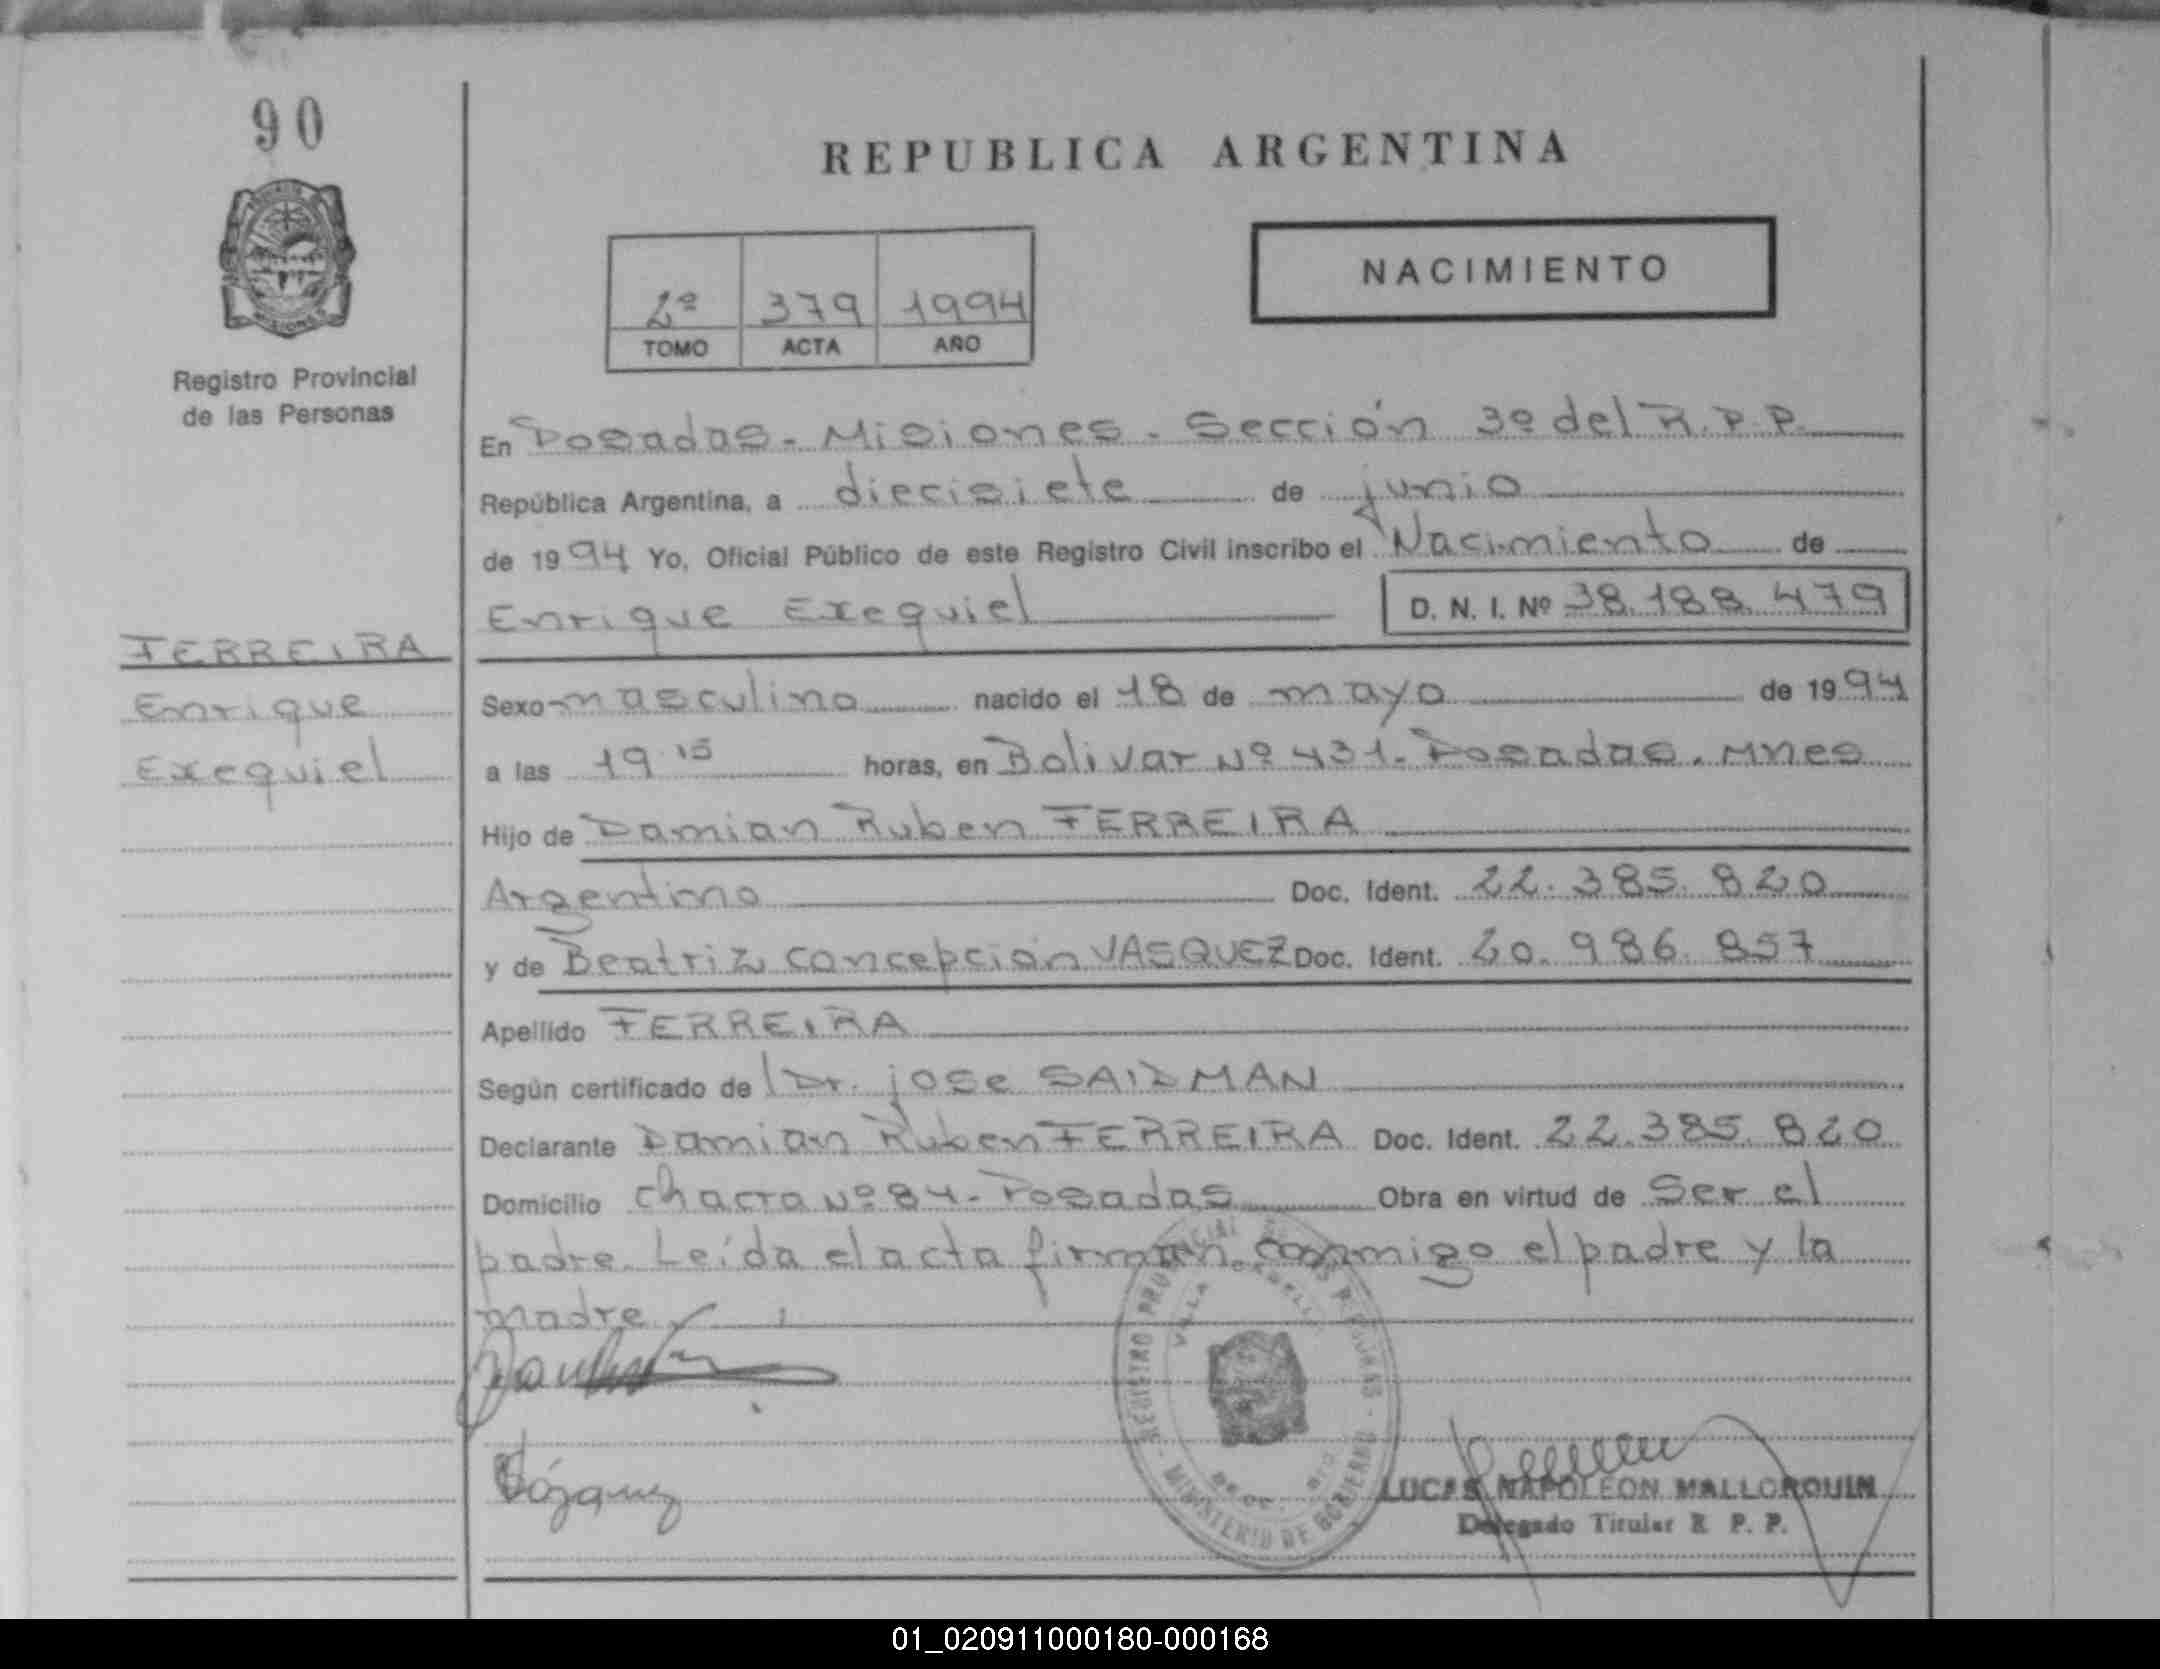 90
REPUBLICA ARGENTINA
2º 379 1994
TOMO ACTA AÑO
NACIMIENTO
Registro Provincial
de las Personas
En Posadas - Misiones - Sección 3º del R.P.P.
República Argentina, a diecisiete de junio
de 1994 Yo, Oficial Público de este Registro Civil inscribo el Nacimiento de
Enrique Exequiel D. N. I. Nº 38.188.479
FERREIRA
Enrique
Exequiel
Sexo masculino nacido el 18 de mayo de 1994
a las 19 15 horas, en Bolivar Nº 431 - Posadas. Mnes
Hijo de Damian Ruben FERREIRA
Argentino Doc. Ident. 22.385.820
y de Beatriz Concepción VASQUEZ Doc. Ident. 20.986.857
Apellido FERREIRA
Según certificado de Dr. jose SAIDMAN
Declarante Damian Ruben FERREIRA Doc. Ident. 22.385.820
Domicilio Chacra Nº 84 - Posadas Obra en virtud de Ser el
padre. Leída el acta firman conmigo el padre y la
madre
REGISTRO PROVINCIAL DE LAS PERSONAS - MINISTERIO DE GOBIERNO
VILLA
LUCAS NAPOLEON MALLORQUIN
Delegado Titular R. P. P.
01_020911000180-000168